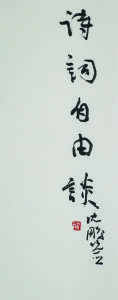 诗词自由谈
沈鹏